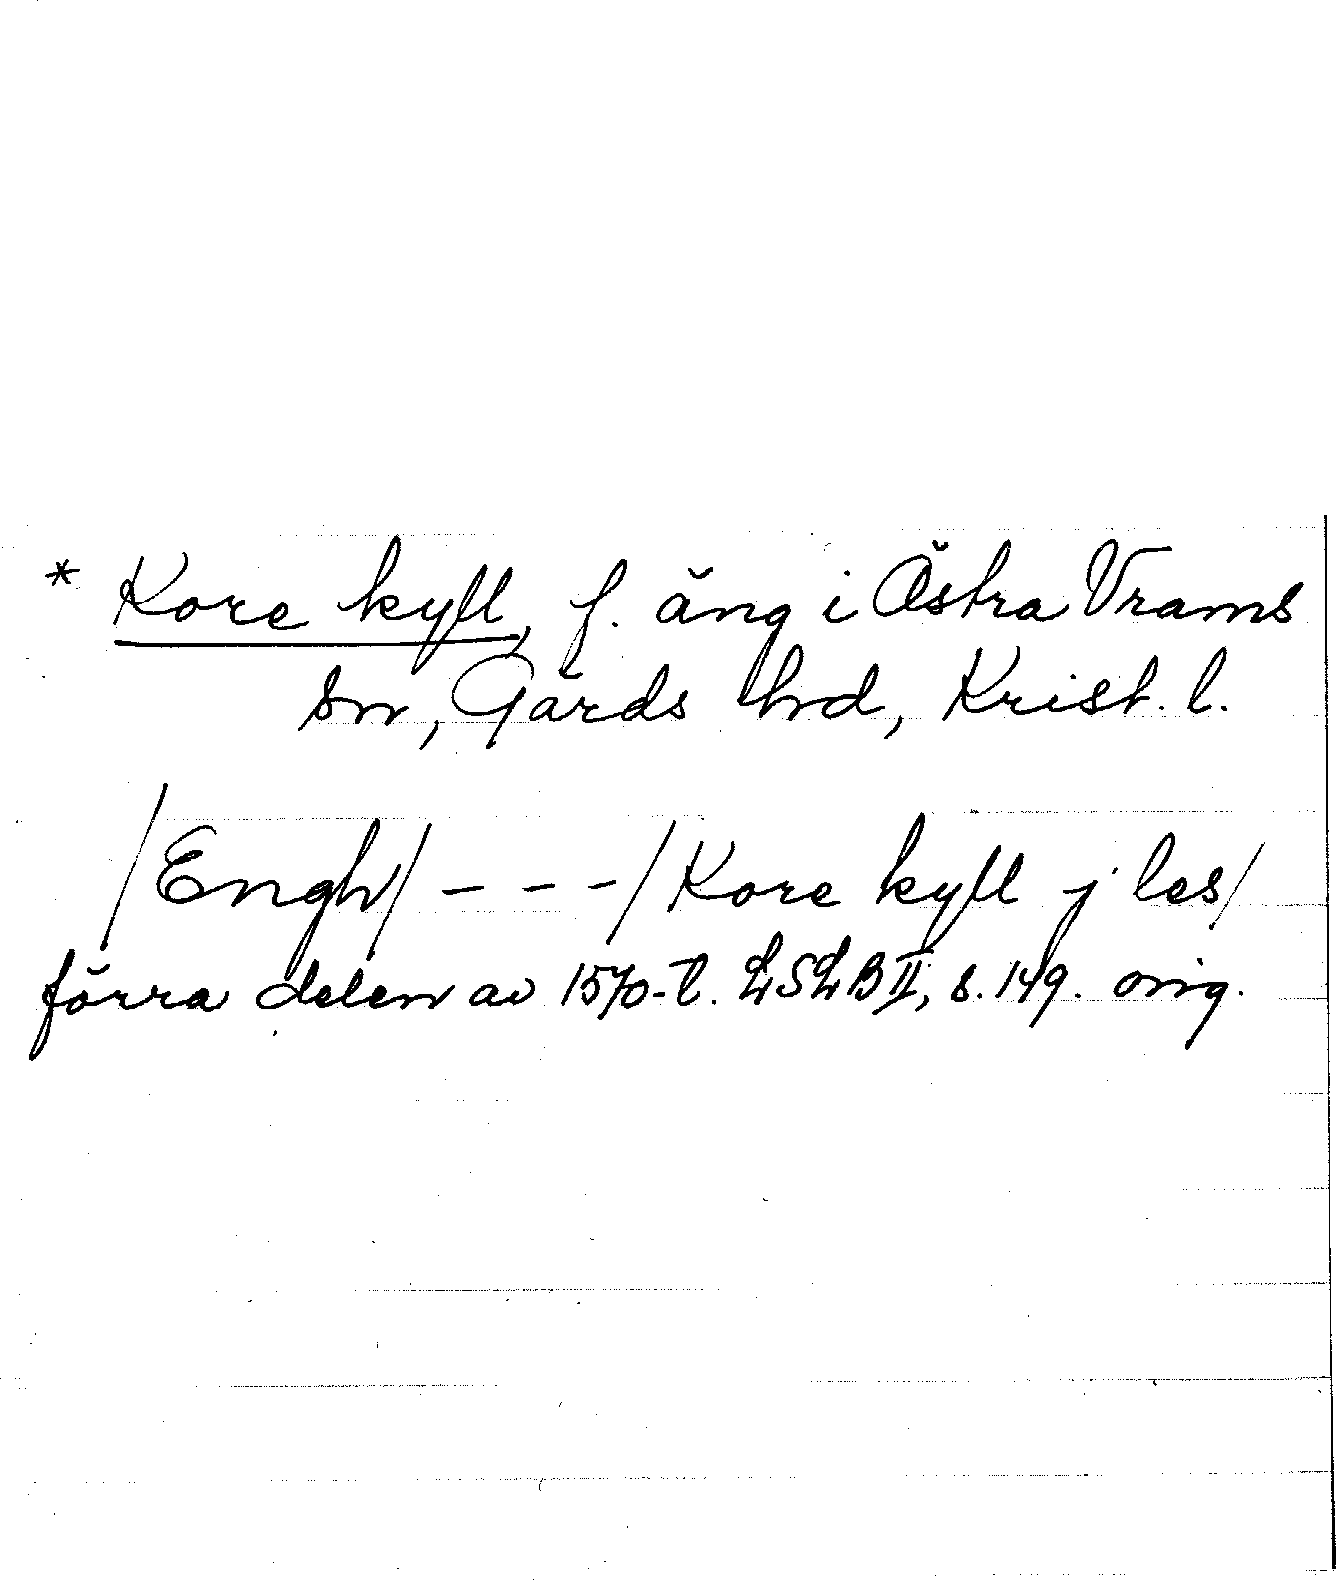 * Kore kyll, f. äng i Östra Vrams
sn, Gärds hrd, Krist. l.
/Engh/ - - - / Kore kyll j les/
förra delen av 1570-t. LSLB II, s. 149. orig.